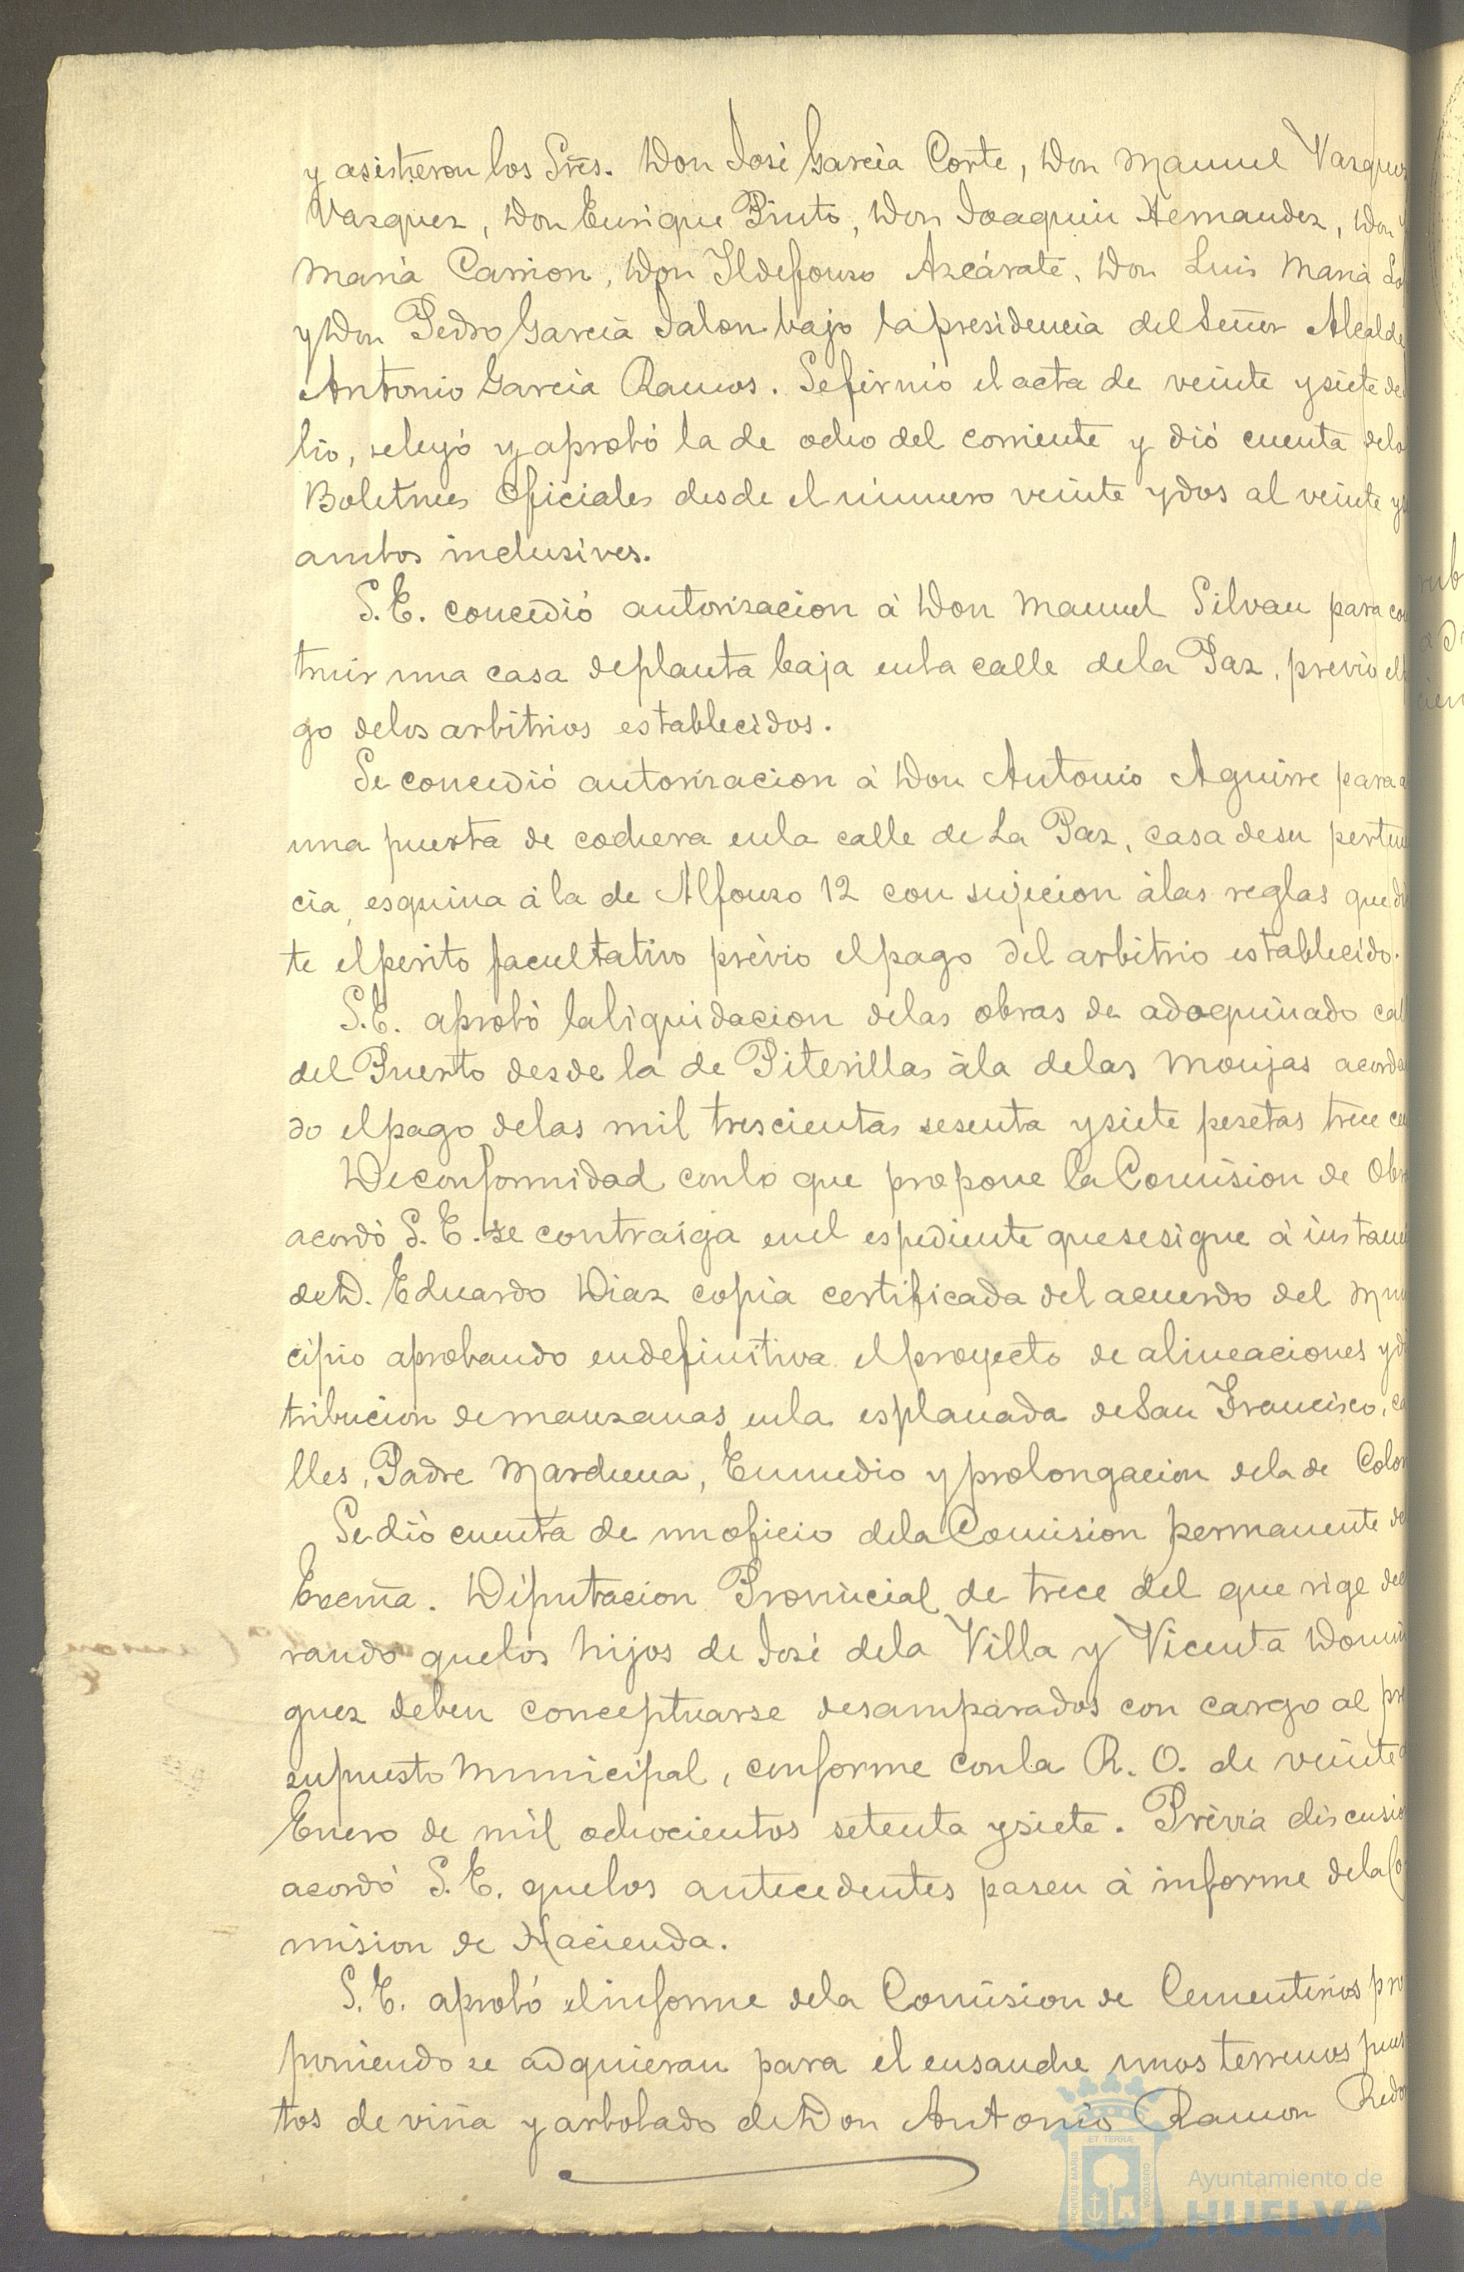 y asistieron los Sres. Don José Garcia Corte, Don Manuel Vazquez
Vazquez, Don Enrique Pinto, Don Joaquin Hernandez, Don
Maria Carrion, Don Ildefonso Azcárate, Don Luis Maria
y Don Pedro Garcia Jalon bajo la presidencia del Señor Alcalde
Antonio Garcia Ramos. Se firmó el acta de veinte y siete de
lio, se leyó y aprobó la de ocho del corriente y dió cuenta de los
Boletines Oficiales desde el número veinte y dos al veinte y
ambos inclusives.
S.E. concedió autorizacion à Don Manuel Silvan para co
truir una casa de planta baja en la calle de la Paz, previo el
go de los arbitrios establecidos.
Se concedió autorizacion à Don Antonio Aguirre para a
una puerta de cochera en la calle de La Paz, casa de su pertenen
cia, esquina à la de Alfonso 12 con sujecion à las reglas que di
te el perito facultativo prévio el pago del arbitrio establecido.
S.E. aprobó la liquidacion de las obras de adoquinado cal
del Puerto desde la de Piterillas à la de las Monjas acorda
do el pago de las mil trescientas sesenta y siete pesetas trece ce
De conformidad con lo que propone la Comision de Obr
acordó S.E. se contraiga en el espediente que se sigue à instan
de D. Eduardo Diaz copia certificada del acuerdo del Mu
cipio aprobando en definitiva el proyecto de alineaciones y di
tribucion de manzanas en la esplanada de San Francisco, ca
lles, Padre Marchena, Enmedio y prolongacion de la de Colon
Se dió cuenta de un oficio de la Comision permanente de
Excma. Diputacion Provincial de trece del que rige decla
rando que los hijos de José de la Villa y Vicenta Domin
guez deben conceptuarse desamparados con cargo al pre
supuesto Municipal, conforme con la R. O. de veinte
Enero de mil ochocientos setenta y siete. Prévia discusio
acordó S.E. que los antecedentes pasen à informe de la Co
mision de Hacienda.
S.E. aprobó el informe de la Comision de Cementerios pro
poniendo se adquieran para el ensanche unos terrenos pues
tos de viña y arbolado de Don Antonio Ramon Redo
Ayuntamiento de
HUELVA